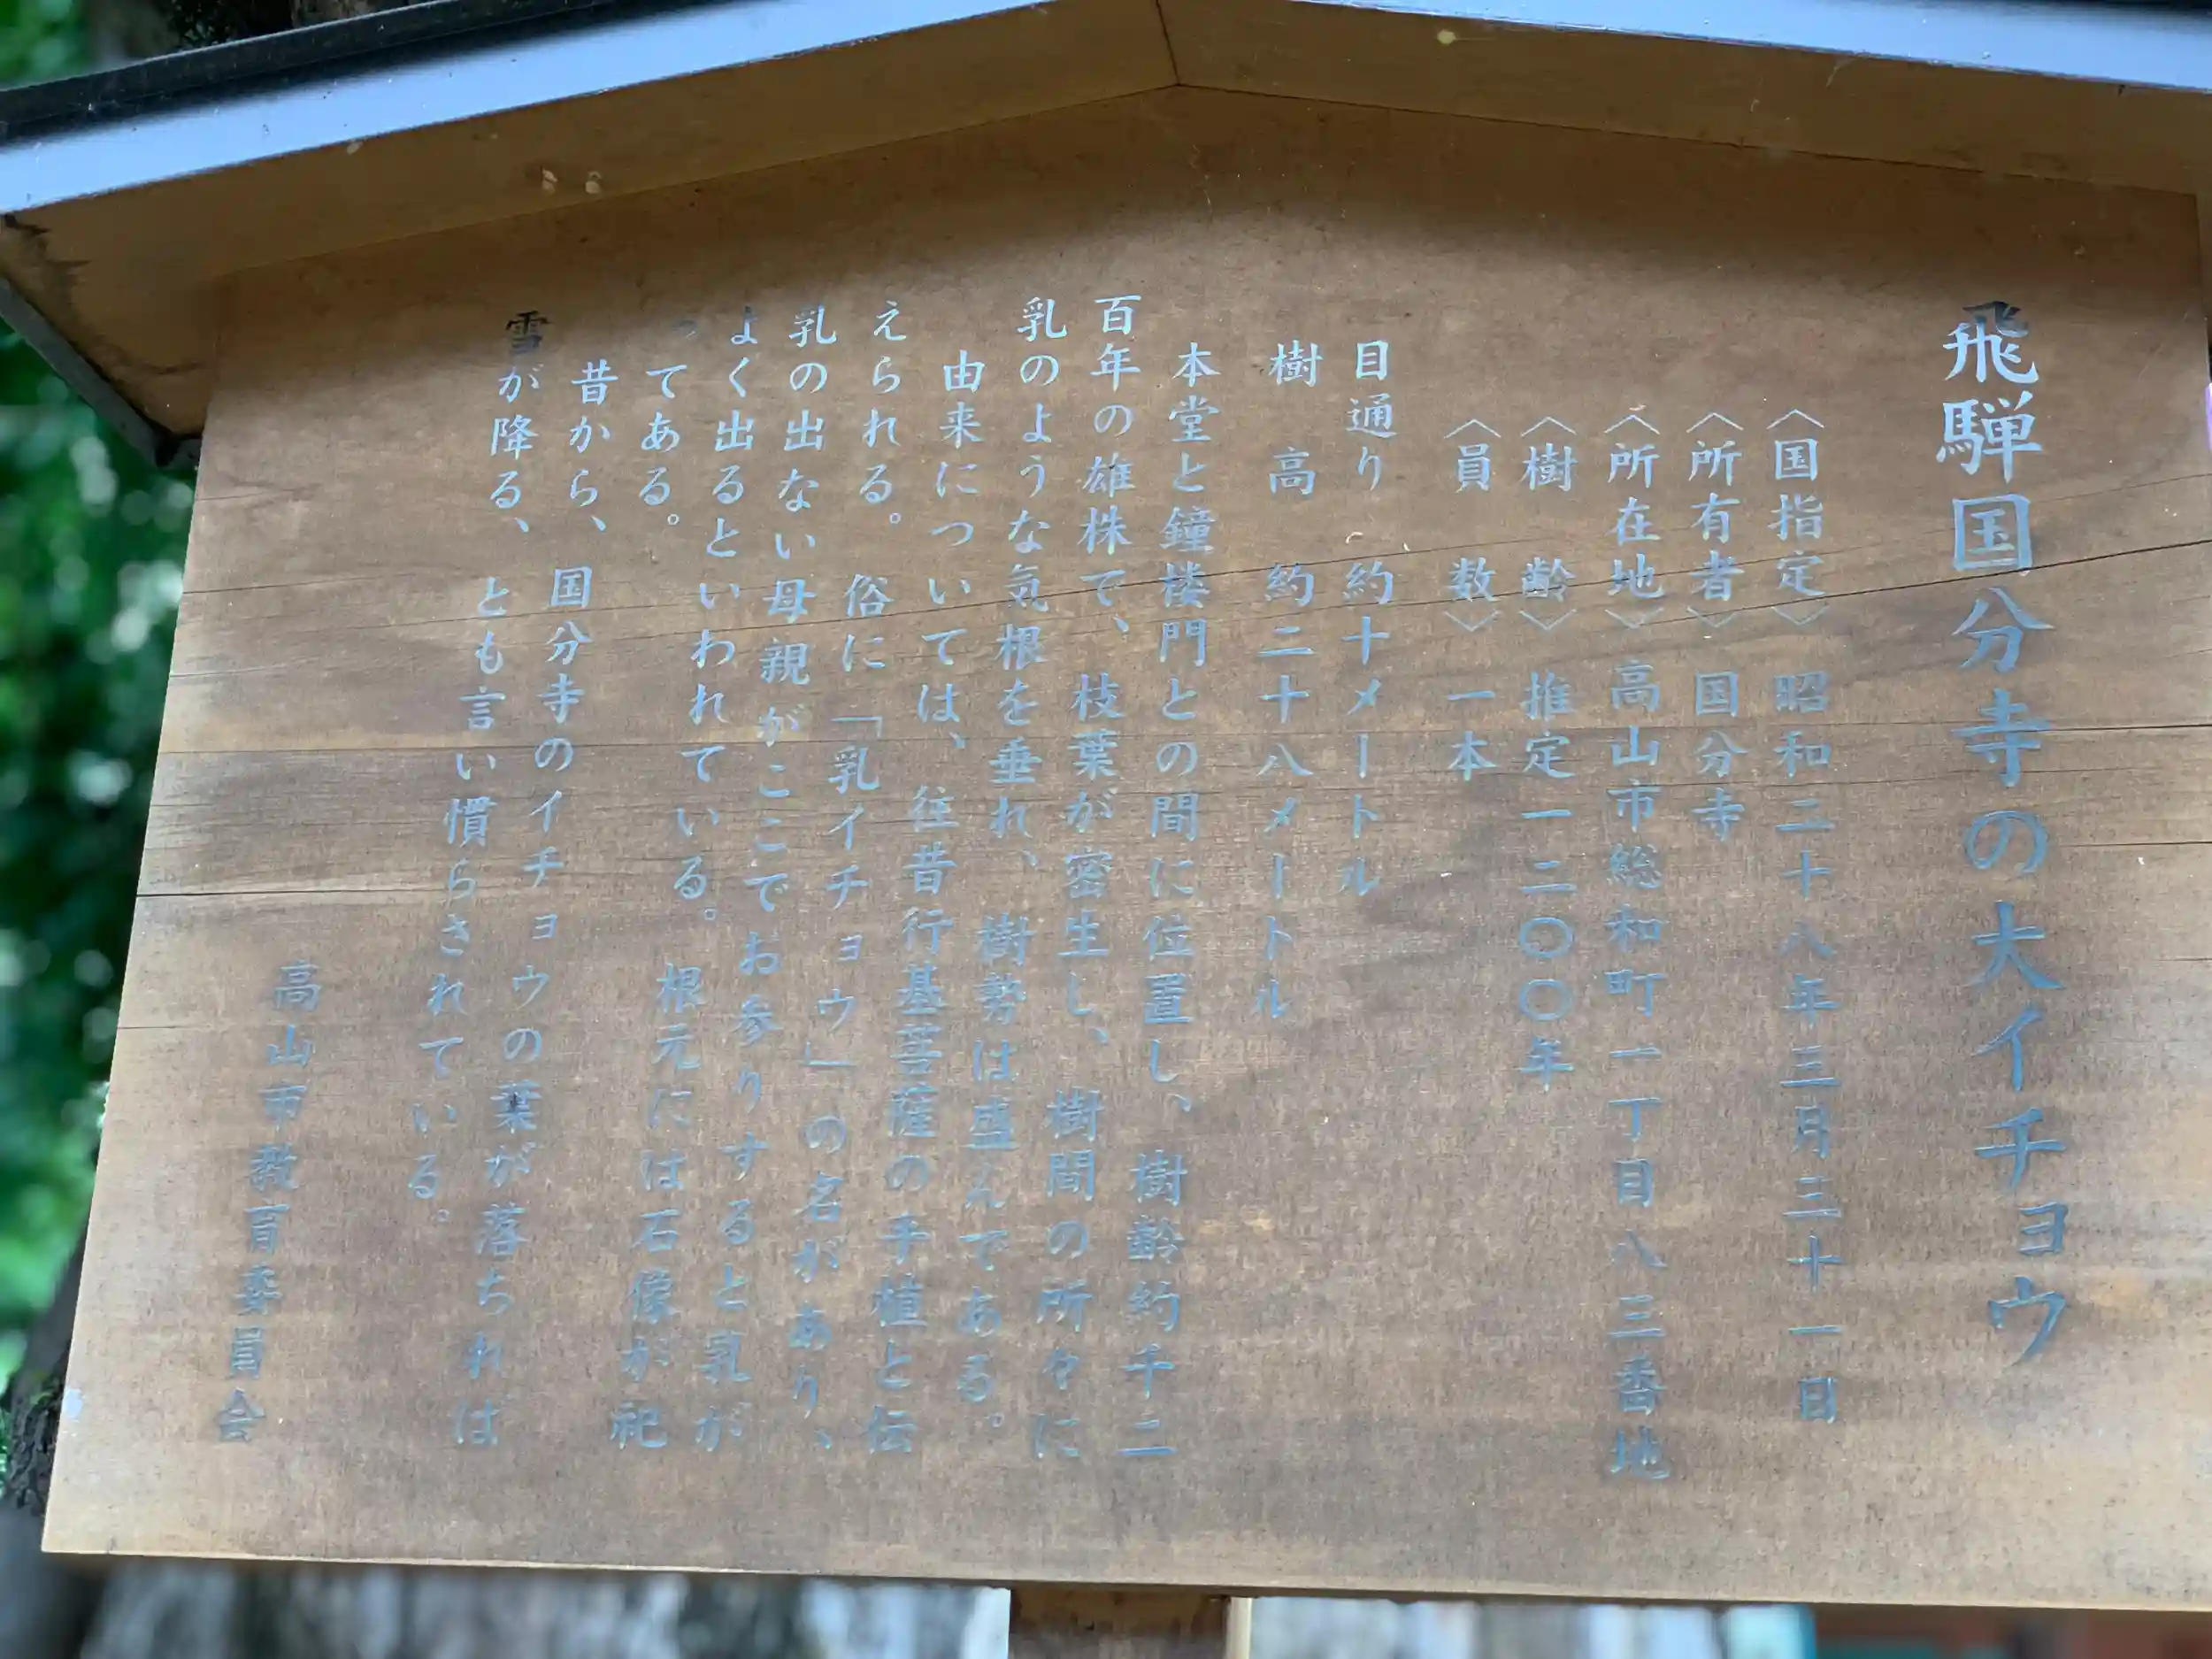 飛騨国分寺の大イチョウ
〈国指定〉 昭和二十八年三月三十一日
〈所有者〉 国分寺
〈所在地〉 高山市総和町一丁目八三番地
〈樹 齢〉 推定一二〇〇年
〈員 数〉 一本
目通り 約十メートル
樹 高 約二十八メートル
本堂と鐘楼門との間に位置し、樹齢約千二
百年の雄株で、枝葉が密生し、樹間の所々に
乳のような気根を垂れ、樹勢は盛んである。
由来については、往昔行基菩薩の手植と伝
えられる。 俗に「乳イチョウ」の名があり、
乳の出ない母親がここでお参りすると乳が
よく出るといわれている。 根元には石像が祀
ってある。
昔から、国分寺のイチョウの葉が落ちれば
雪が降る、とも言い慣らされている。
高山市教育委員会